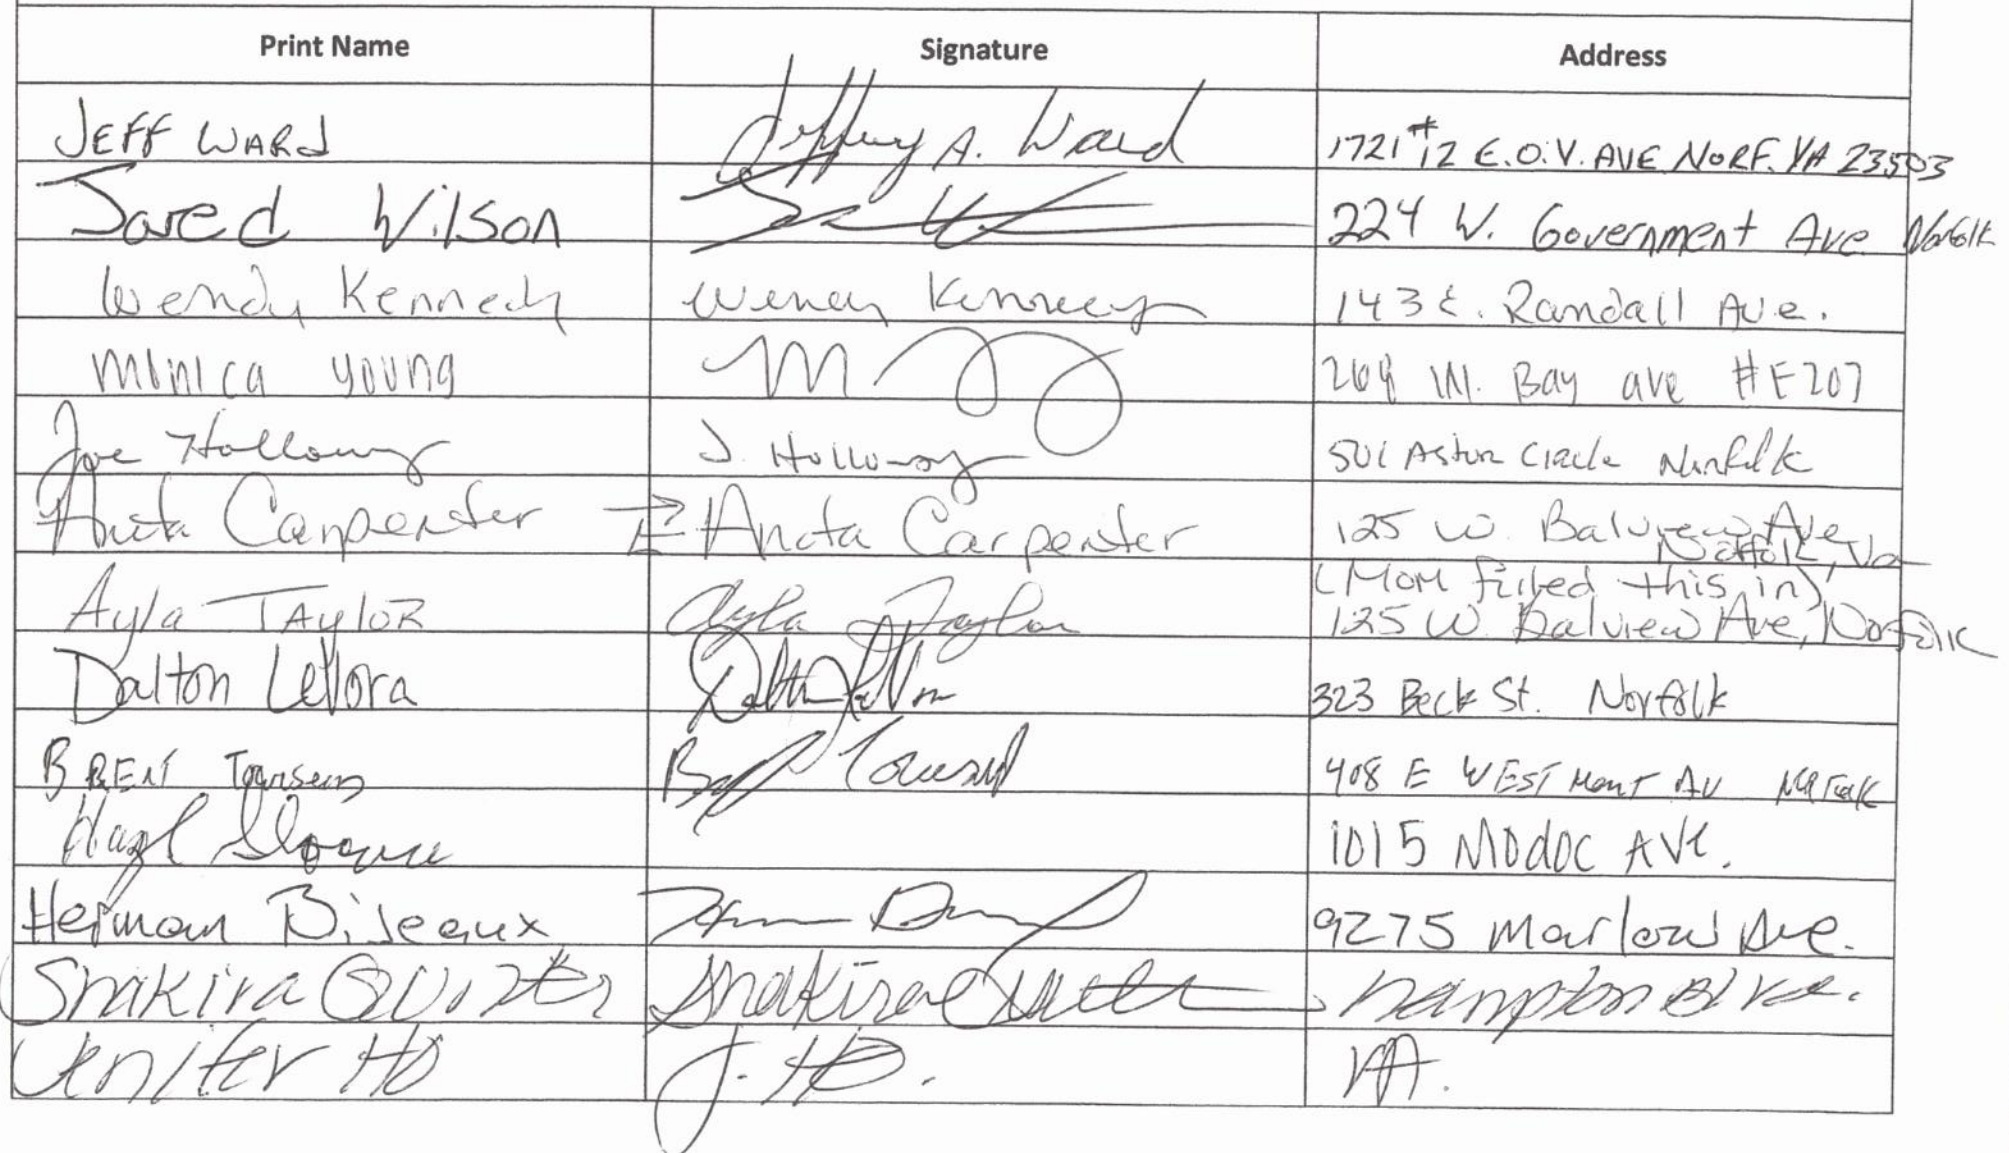 Print Name Signature Address
JEFF WARD Jeffrey A. Ward 1721 #12 E.O.V. AVE NORF. VA 23503
Jared Wilson 224 W. Government Ave Norfolk
Wendy Kennedy Wendy Kennedy 143 E. Randall Ave.
Monica young M 264 W. Bay ave #E207
Joe Holloway J. Holloway 501 Aston Circle Norfolk
Anita Carpenter Anita Carpenter 125 W. Balview Ave
Norfolk, Va
(Mom filled this in)
Ayla TAYLOR Ayla Taylor 125 W. Balview Ave, Norfolk
Dalton LeVora 323 Beck St. Norfolk
BRENT 408 E WESTMONT AV Norfolk
1015 Modoc AVE.
Herman Biseaux 9275 Marlow Ave.
Shakira Shakira hampton Blvd.
Jenifer Ho J. Ho. VA.